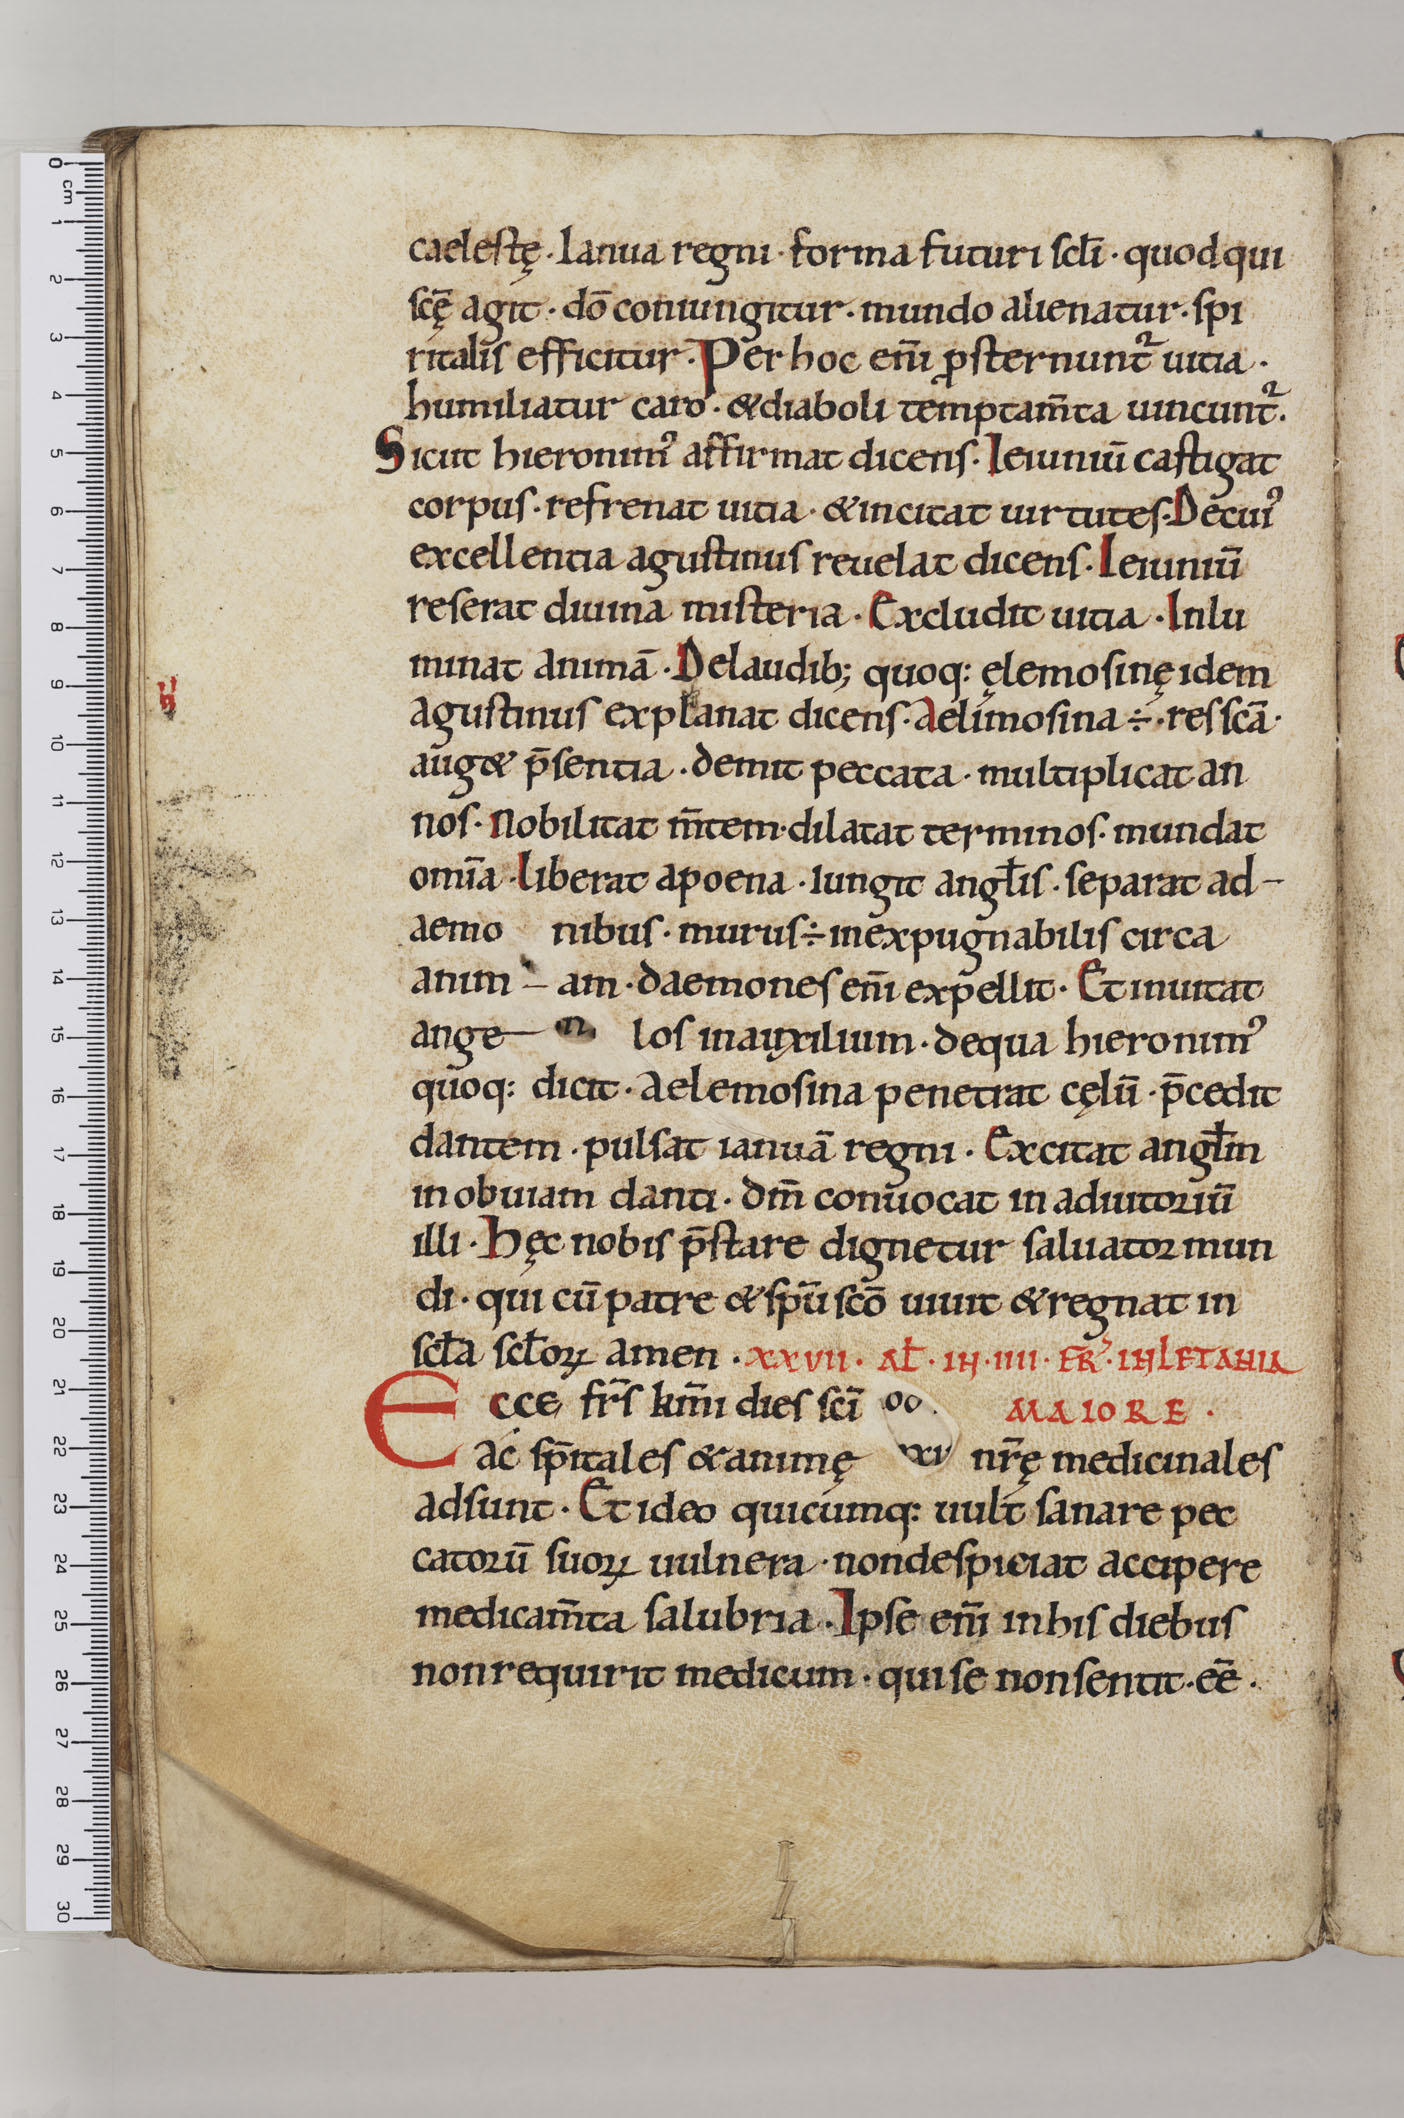 caelestę · Ianua regni · forma futuri scl̄i · quod qui
scę̄ agit · dō coniungitur · mundo alienatur · spi
ritalis efficitur · Per hoc enī ꝓsternunt᷑ uitia ·
humiliatur caro · & diaboli temptam̄ta uincunt᷑.
Sicut hieronim᾽ affirmat dicens · Ieiuniū castigat
corpus · refrenat uitia · & incitat uirtutes. De cui᾽
excellentia agustinus reuelat dicens · Ieiuniū
reserat diuina misteria · Excludit uitia · Inlu
minat animā · De laudib; quoq: ęlemosinę idem
agustinus explanat dicens · Aelimosina ÷ · res scā ·
aug& p̄sentia · demit peccata · multiplicat an
nos · Nobilitat m̄tem · dilatat terminos · mundat
omīa · Liberat a poena · iungit angl̄is · separat a d-
aemo nibus · murus ÷ inexpugnabilis circa
anim - am · daemones enī expellit · Et inuitat
ange- los in auxilium · de qua hieronim᾽
quoq: dicit · Aelemosina penetrat cęlū · p̄cedit
dantem · pulsat ianuā regni · Excitat angl̄m
in obuiam danti · dm̄ conuocat in adiutoriū
illi · Hęc nobis p̄stare dignetur saluator mun
di · qui cū patre & spū scō uiuit & regnat in
scl̄a scl̄oꝝ amen · XXVII · AL̄ · IN · IIII · FR᾽ · IN LETANIA
Ecce fr̄s km̄i dies scī MAIORE ·
ac sp̄itales & animę nr̄ę medicinales
adsunt · Et ideo quicumq: uult sanare pec
catorū suoꝝ uulnera · non despiciat accipere
medicam̄ta salubria · Ipse enī in his diebus
non requirit medicum · qui se non sentit · eē ·